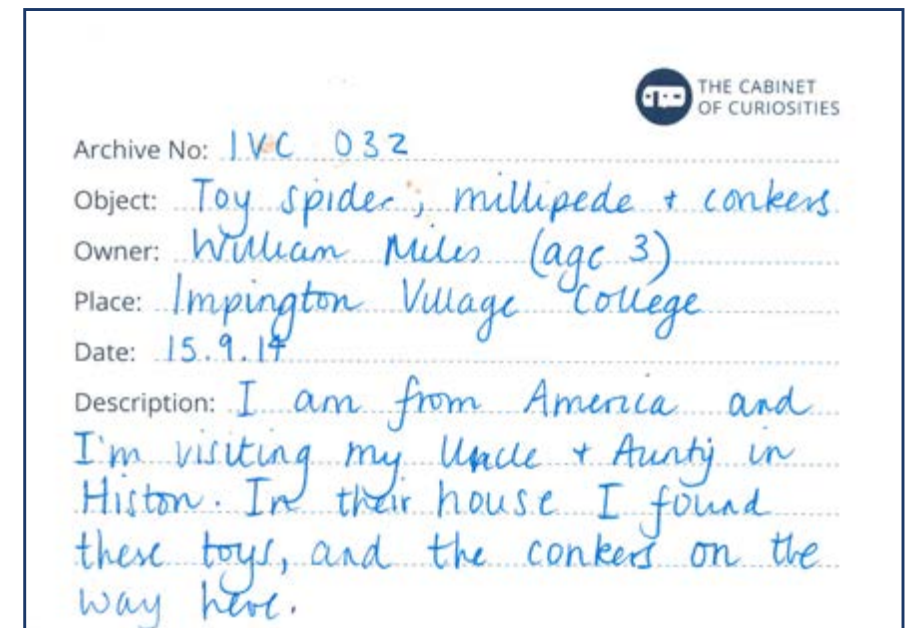 THE CABINET
OF CURIOSITIES
Archive No: IVC 032
Object: Toy spider, millipede + conkers
Owner: William Miles (age 3)
Place: Impington Village College
Date: 15.9.14
Description: I am from America and
I'm visiting my Uncle + Aunty in
Histon. In their house I found
these toys, and the conkers on the
way here.